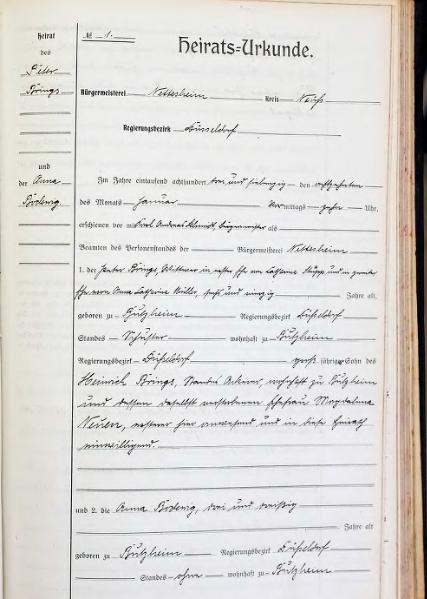 Heirat
des
Peter
Brings
und
der Anna
Bodewig
№ 1.
Heirats-Urkunde.
Bürgermeisterei Nettesheim Kreis Neuß
Regierungsbezirk Düsseldorf
Im Jahre eintausend achthundert drei und siebenzig den achtzehnten
des Monats Januar Vormittags zehn Uhr,
erschienen vor mir Karl Andreas Schmidt, Bürgermeister als
Beamten des Personenstandes der Bürgermeisterei Nettesheim
1. der Peter Brings, Wittwer in erster Ehe von Catharina und in zweiter
Ehe von Anna Catharina Müller, sechs und vierzig Jahre alt
geboren zu Butzheim Regierungsbezirk Düsseldorf
Standes Schuster wohnhaft zu Butzheim
Regierungsbezirk Düsseldorf groß jähriger Sohn des
Heinrich Brings, Standes Ackerer, wohnhaft zu Butzheim
und dessen daselbst verstorbenen Ehefrau Magdalena
Neuen, ersterer hier anwesend und in diese Heirath
einwilligend.
und 2. die Anna Bodewig, drei und dreißig
Jahre alt
geboren zu Butzheim Regierungsbezirk Düsseldorf
Standes ohne wohnhaft zu Butzheim